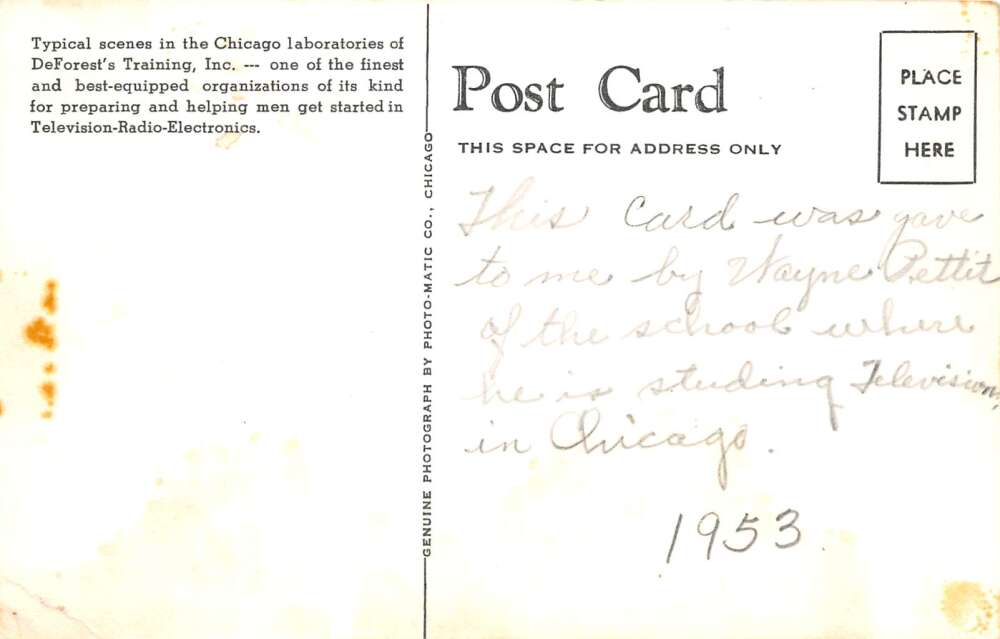 Typical scenes in the Chicago laboratories of
DeForest's Training, Inc. --- one of the finest
and best-equipped organizations of its kind
for preparing and helping men get started in
Television-Radio-Electronics.
GENUINE PHOTOGRAPH BY PHOTO-MATIC CO., CHICAGO
Post Card
THIS SPACE FOR ADDRESS ONLY
PLACE
STAMP
HERE
This Card was gave
to me by Wayne Pettit
of the school where
he is studing Television,
in Chicago.
1953